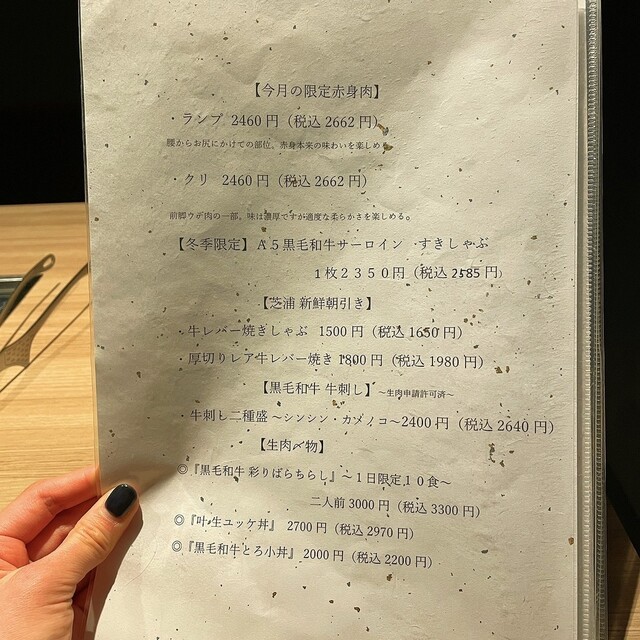 【今月の限定赤身肉】
・ランプ 2460円（税込2662円）
腰からお尻にかけての部位。赤身本来の味わいを楽しめ
・クリ 2460円（税込2662円）
前脚ウデ肉の一部。味は濃厚ですが適度な柔らかさを楽しめる。
【冬季限定】A5黒毛和牛サーロイン すきしゃぶ
1枚2350円（税込2585円）
【芝浦 新鮮朝引き】
・牛レバー焼きしゃぶ 1500円（税込1650円）
・厚切りレア牛レバー焼き 1800円（税込1980円）
【黒毛和牛 牛刺し】～生肉申請許可済～
・牛刺し二種盛 ～シンシン・カメノコ～2400円（税込2640円）
【生肉〆物】
◎『黒毛和牛 彩りばらちらし』～1日限定10食～
二人前3000円（税込3300円）
◎『叶え生ユッケ丼』 2700円（税込2970円）
◎『黒毛和牛とろ小丼』 2000円（税込2200円）